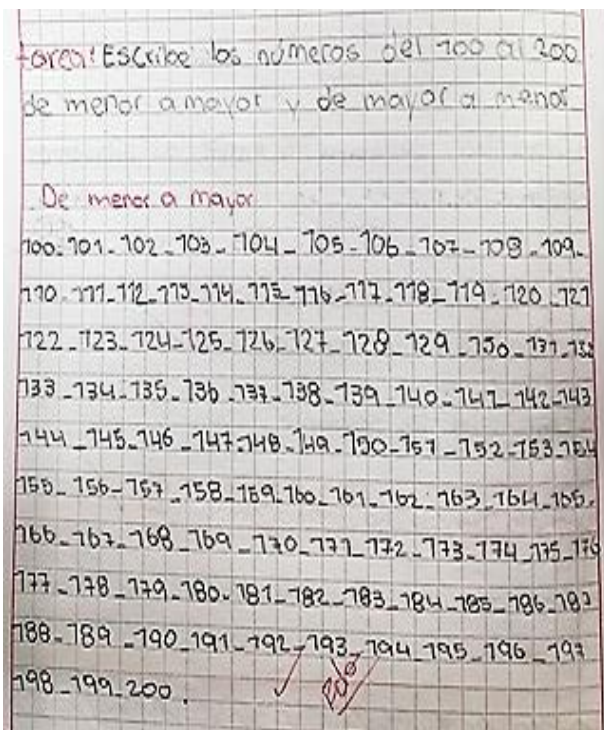 tarea: Escribe los números del 100 al 200
de menor a mayor y de mayor a menor
De menor a mayor
100-101-102-103-104-105-106-107-108-109-
110-111-112-113-114-115-116-117-118-119-120-121
122-123-124-125-126-127-128-129-130-131-132
133-134-135-136-137-138-139-140-141-142-143
144-145-146-147-148-149-150-151-152-153-154
155-156-157-158-159-160-161-162-163-164-165-
166-167-168-169-170-171-172-173-174-175-176
177-178-179-180-181-182-183-184-185-186-187
188-189-190-191-192-193-194-195-196-197
198-199-200.